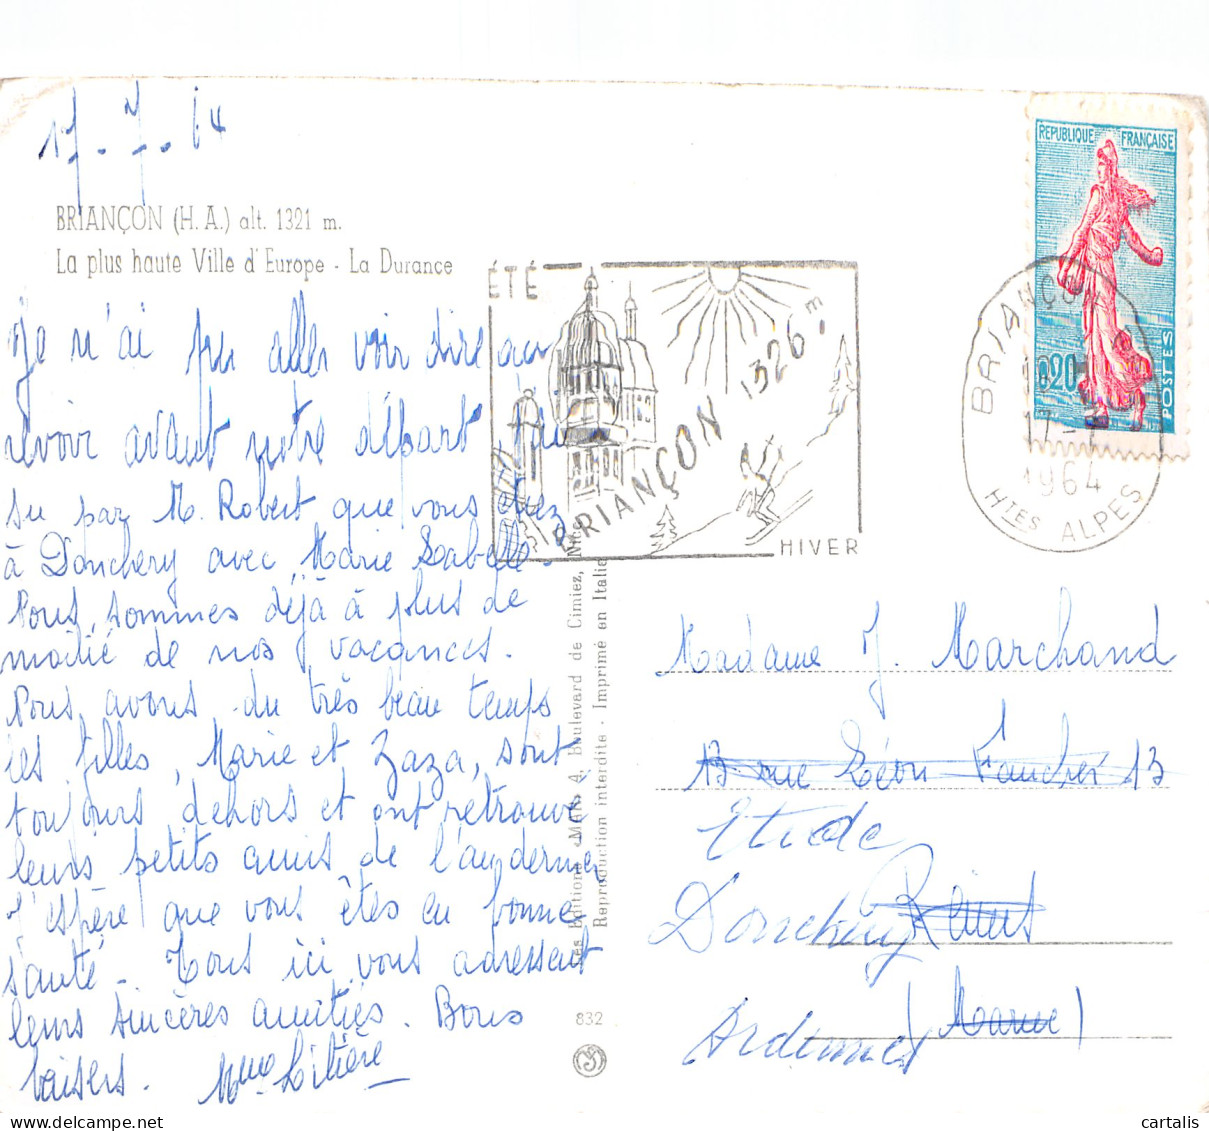 17-7-64
BRIANÇON (H. A.) alt. 1321 m.
La plus haute Ville d'Europe - La Durance
Je n'ai pu aller voir dire au
revoir avant notre départ, j'ai
su par M. Robert que vous étiez
à Donchery avec Marie Isabelle
Nous sommes déjà à plus de
moitié de nos vacances.
Nous avons du très beau temps
les filles, Marie et Zaza, sont
toujours dehors et ont retrouvé
leurs petits amis de l'an dernier
J'espère que vous êtes en bonne
santé. Tous ici vous adressent
leurs sincères amitiés. Bons
baisers. Mme
ÉTÉ
BRIANÇON 1326 m
HIVER
REPUBLIQUE FRANÇAISE
0,20
POSTES
BRIANÇON
1964
HTES ALPES
boulevard de Cimiez, Nice
Reproduction interdite - Imprimé en Italie
832
Madame J. Marchand
13 rue Léon Faucher 13
Etude
Donchery Reims
Ardennes (Marne)
cartalis